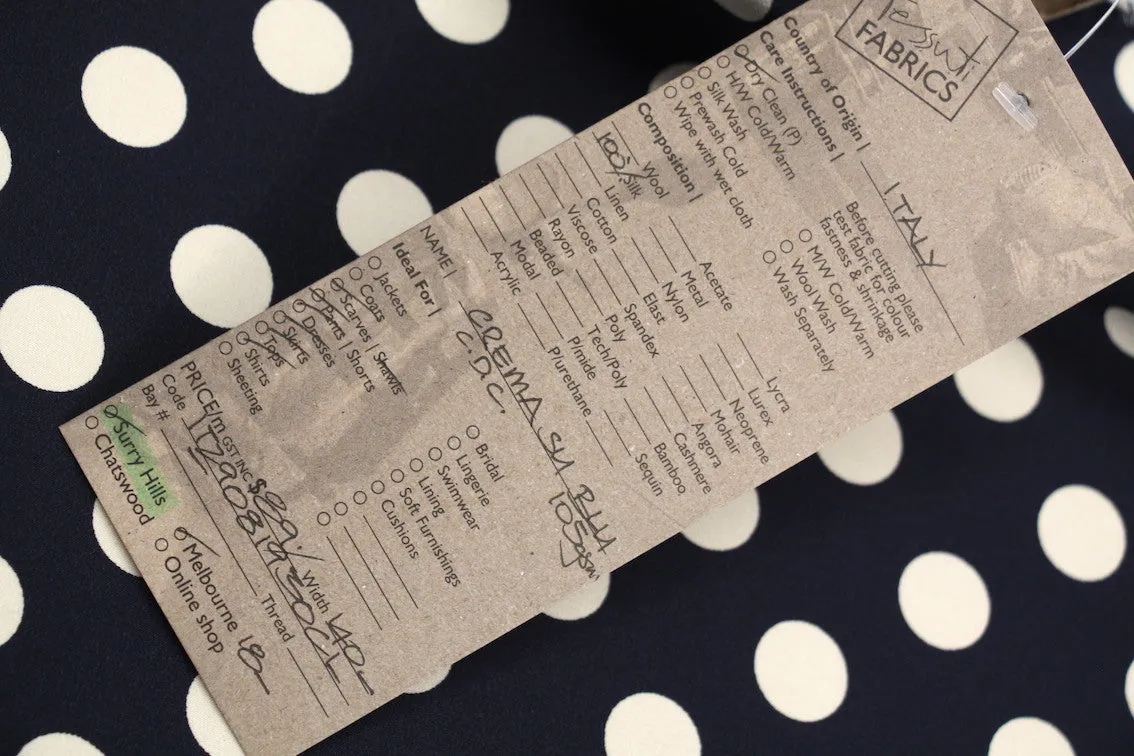 Tessuti
FABRICS
Country of Origin | ITALY
Care Instructions |
Dry Clean (P)
H/W Cold/Warm
Silk Wash
Prewash Cold
Wipe with wet cloth
Before cutting please
test fabric for colour
fastness & shrinkage
M/W Cold/Warm
Wool Wash
Wash Separately
Composition |
Wool Acetate Lycra
100% Silk Metal Lurex
Linen Nylon Neoprene
Cotton Elast Mohair
Viscose Spandex Angora
Rayon Poly Cashmere
Beaded Tech/Poly Bamboo
Modal P/mide Sequin
Acrylic P/urethane
NAME | CREMA SU BLU
C.D.C. 105gsm
Ideal For |
Jackets
Coats
Scarves | Shawls
Pants | Shorts
Dresses
Skirts
Tops
Shirts
Sheeting
Bridal
Lingerie
Swimwear
Lining
Soft Furnishings
Cushions
PRICE/m GST INC $89. Width 140
Code
Bay # Thread
Surry Hills
Chatswood
Melbourne
Online shop